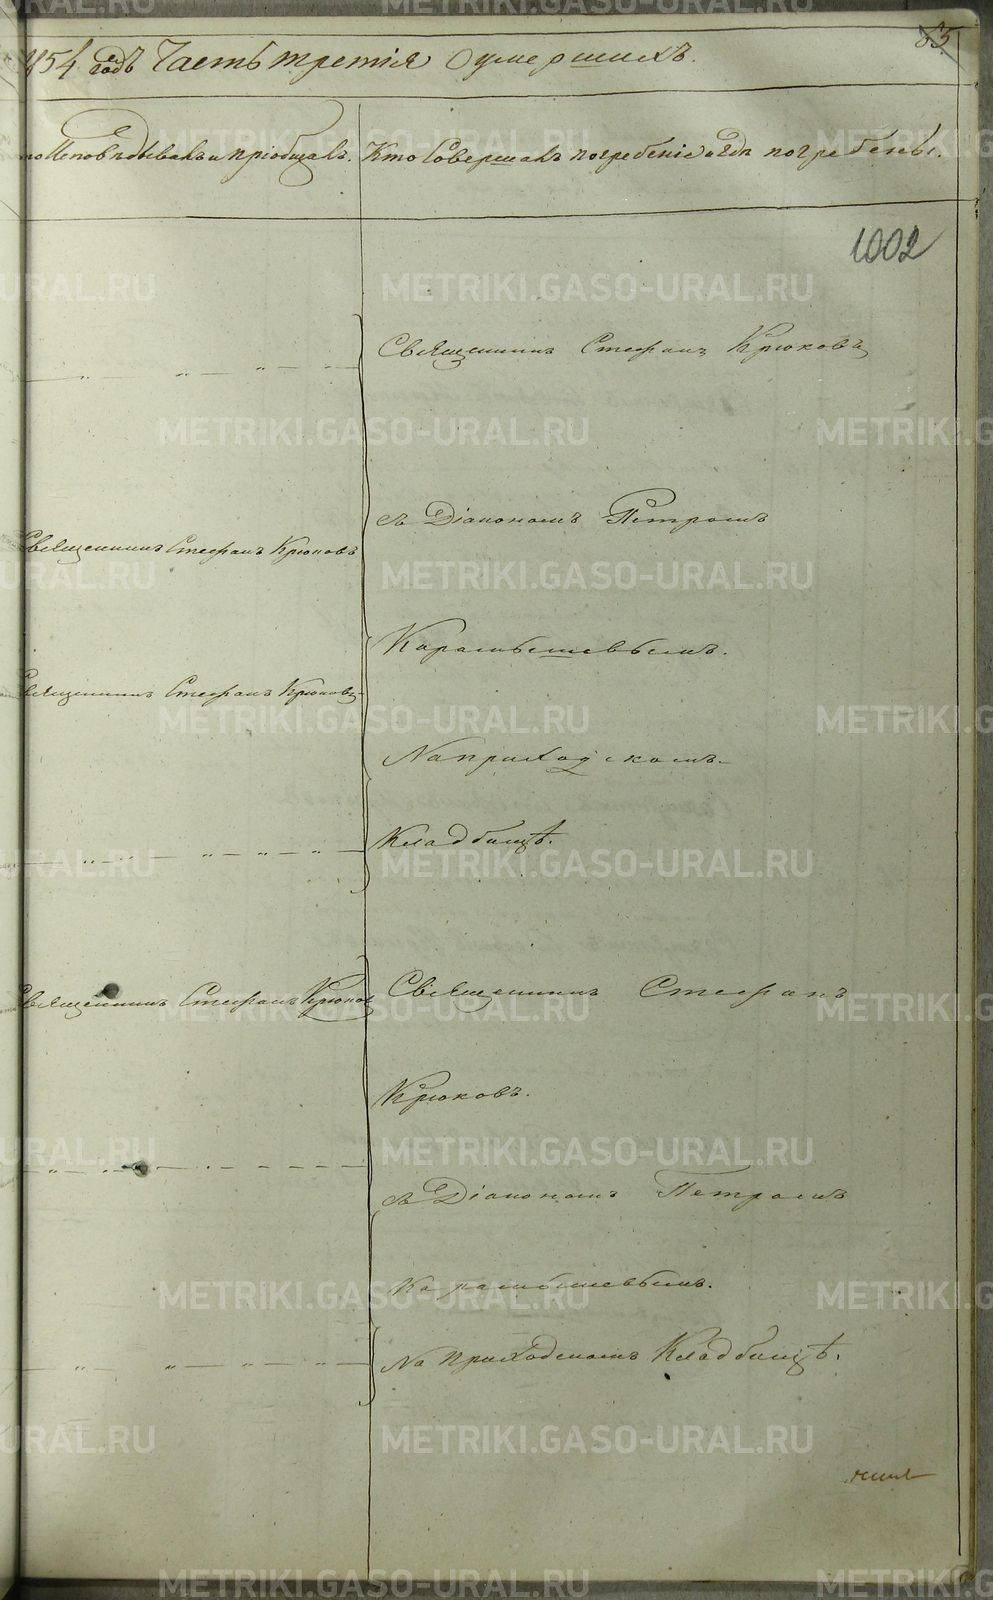 85
1854 годъ Часть третія О умершихъ.
то Исповѣдывалъ и пріобщалъ.
Кто Совершалъ погребеніе и гдѣ погребены.
1002
Священникъ Стефанъ Крюковъ
съ Діакономъ Петромъ
Священникъ Стефанъ Крюковъ
Карамышевымъ.
Священникъ Стефанъ Крюковъ
На приходскомъ
Кладбищѣ.
Священникъ Стефанъ Крюковъ
Священникъ Стефанъ
Крюковъ.
съ Діакономъ Петромъ
Карамышевымъ.
На приходскомъ Кладбищѣ.
METRIKI.GASO-URAL.RU